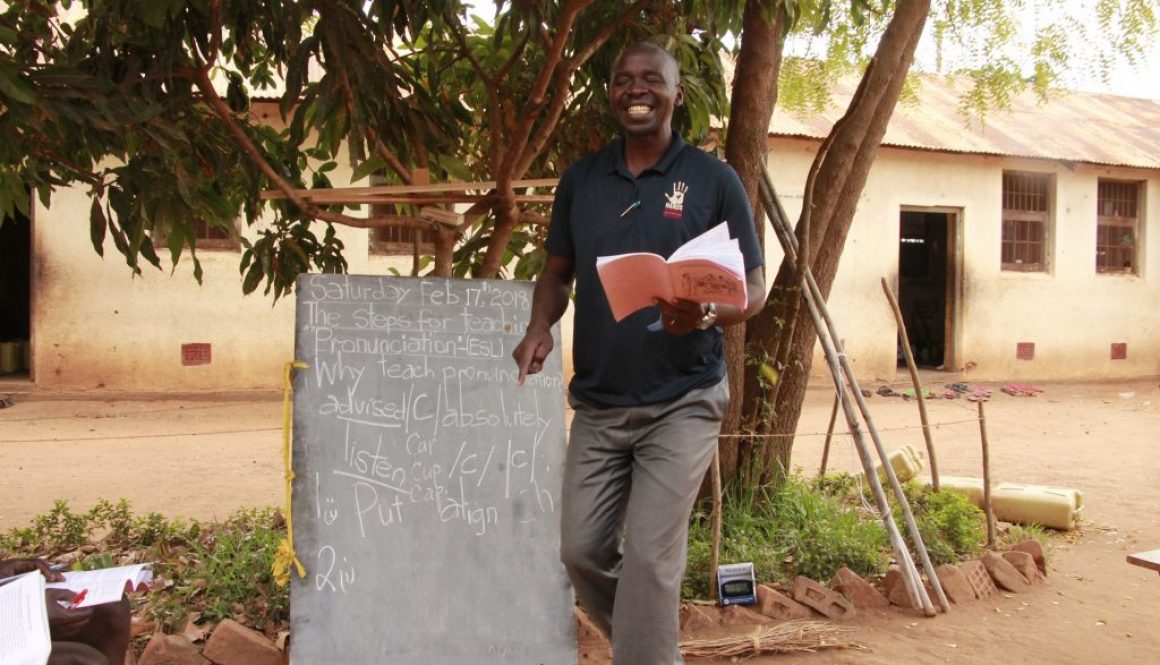 Saturday Feb 17th, 2018
The steps for teachin
Pronunciation-(ESL)
Why teach pronunciation
advised /C/ absolutely
Car
listen Cup /C/ /C/
Put Cap align
2(i)
HANDS